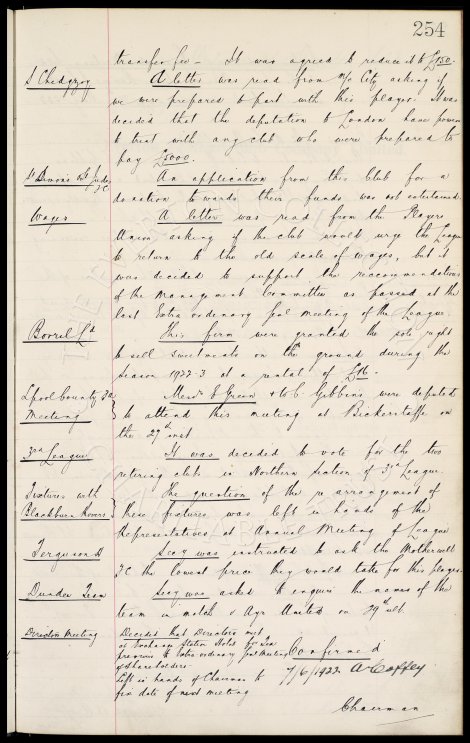 254
transfer fee — It was agreed to reduce it to £150.
S Chedgzoy
A letter was read from M/c City asking if
we were prepared to part with this player. It was
decided that the deputation to London have power
to treat with any club who were prepared to
pay £5000.
St Simon's &
Jude
F.C
An application from this Club for a
donation towards their funds was not entertained.
Wages
A letter was read from the Players
Union asking if the club would urge the League
to return to the old scale of wages, but it
was decided to support the recommendations
of the Management Committee as passed at the
last Extra ordinary Genl meeting of the League.
Bovril Ld
This firm were granted the sole right
to sell sweetmeats on the ground during the
season 1922-3 at a rental of
L'pool County FA
Meeting
Messrs E Green & W C Gibbins were deputed
to attend this meeting at Bickerstaffe on
the 29th inst
3rd League
It was decided to vote for the two
retiring clubs in Northern section of 3rd League.
Fixtures with
Blackburn Rovers
The question of the re arrangement of
these fixtures was left in hands of the
Representatives at Annual Meeting of League
Ferguson A
Secy was instructed to ask the Motherwell
FC the lowest price they would take for this player
Dundee Team
Secy was asked to enquire the names of the
team in match v Ayr United on 29th ult
Directors Meeting
Decided that Directors meet
at Exchange Station Hotel for Tea
previous to Extra ordinary Genl Meeting
of Shareholders
Left in hands of Chairman to
fix date of next meeting
Confirmed
7/6/1922 A Coffey
Chairman